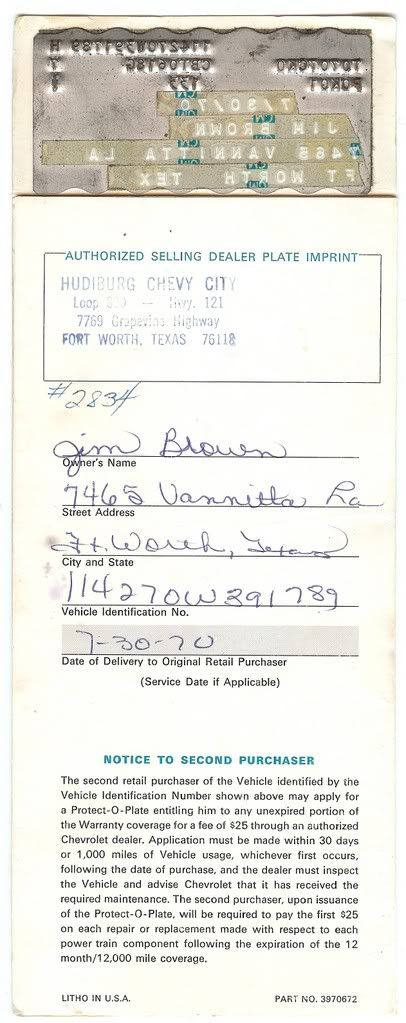 7/30/70
JIM BROWN
7465 VANNITTA LA
FT WORTH TEX
AUTHORIZED SELLING DEALER PLATE IMPRINT
HUDIBURG CHEVY CITY
Loop — Hwy. 121
7769 Grapevine Highway
FORT WORTH, TEXAS 76118
#2834
Jim Brown
Owner's Name
7465 Vannitta La
Street Address
Ft. Worth, Texas
City and State
114270W391789
Vehicle Identification No.
7-30-70
Date of Delivery to Original Retail Purchaser
(Service Date if Applicable)
NOTICE TO SECOND PURCHASER
The second retail purchaser of the Vehicle identified by the
Vehicle Identification Number shown above may apply for
a Protect-O-Plate entitling him to any unexpired portion of
the Warranty coverage for a fee of $25 through an authorized
Chevrolet dealer. Application must be made within 30 days
or 1,000 miles of Vehicle usage, whichever first occurs,
following the date of purchase, and the dealer must inspect
the Vehicle and advise Chevrolet that it has received the
required maintenance. The second purchaser, upon issuance
of the Protect-O-Plate, will be required to pay the first $25
on each repair or replacement made with respect to each
power train component following the expiration of the 12
month/12,000 mile coverage.
LITHO IN U.S.A. PART NO. 3970672